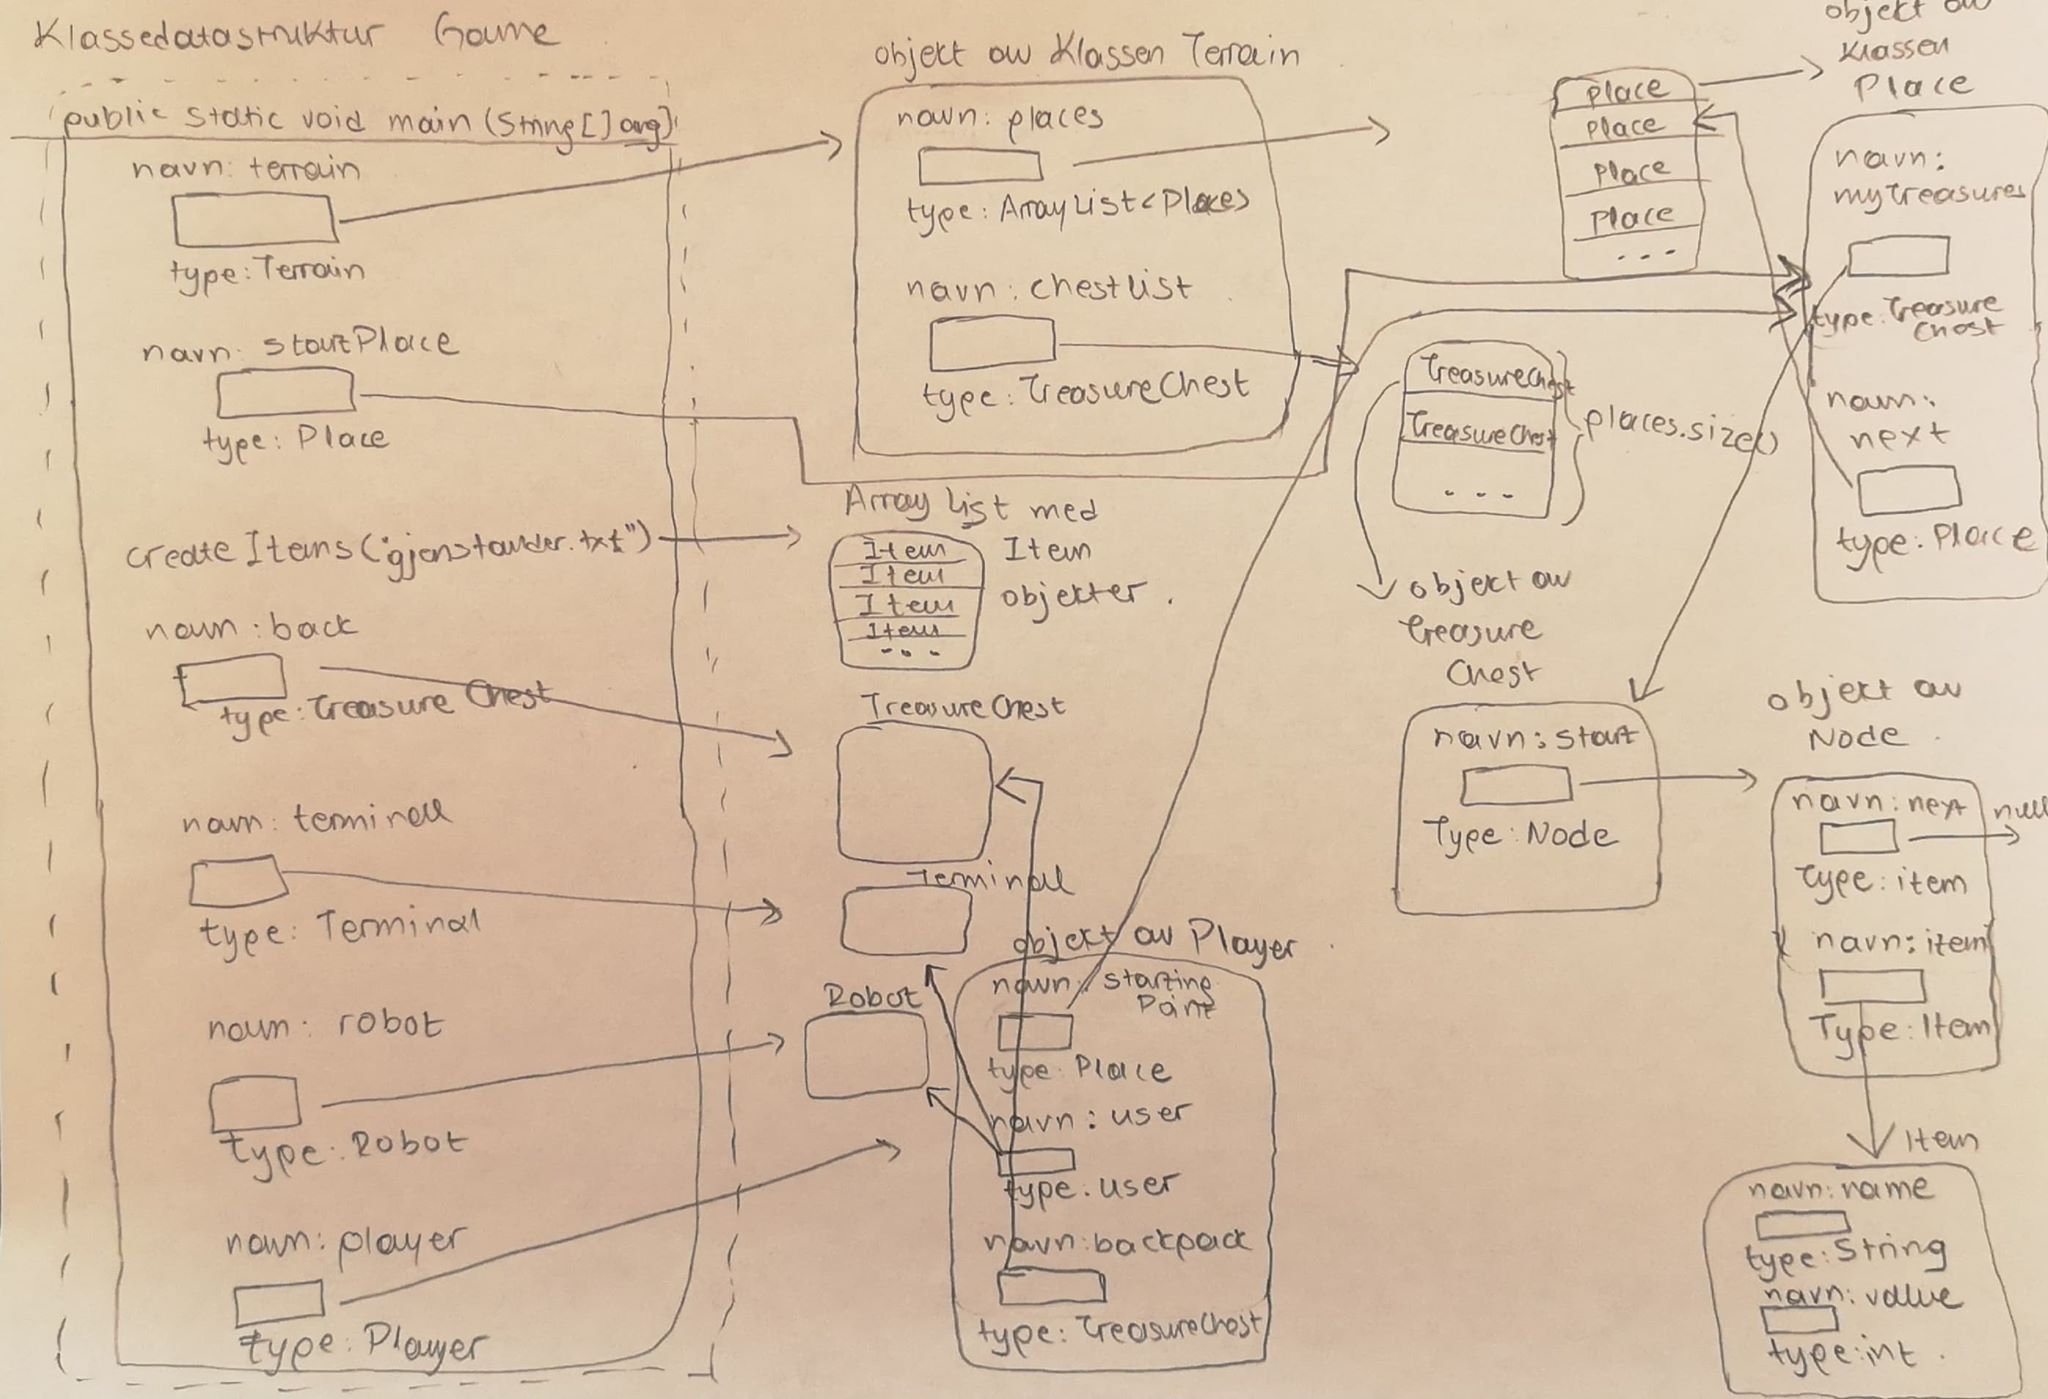 Klassedatastruktur Game
public static void main (String[] arg)
navn: terrain
type: Terrain
navn: startPlace
type: Place
create Items ("gjenstander.txt")
navn: back
type: Treasure Chest
navn: terminal
type: Terminal
navn: robot
type: Robot
navn: player
type: Player
objekt av Klassen Terrain
navn: places
type: ArrayList<Places>
navn: chestlist
type: TreasureChest
Array list med
Item
objekter.
Item
Item
Item
Item
...
TreasureChest
Terminal
Robot
objekt av Player
navn: starting
Point
type: Place
navn: user
type: user
navn: backpack
type: TreasureChest
Place
Place
Place
Place
...
TreasureChest
TreasureChest
...
places.size()
objekt av
Treasure
Chest
navn: start
Type: Node
objekt av
Klassen
Place
navn:
myTreasures
type: Treasure
Chest
navn:
next
type: Place
objekt av
Node
navn: next
null
Type: item
navn: item
Type: Item
Item
navn: name
type: String
navn: value
type: int.